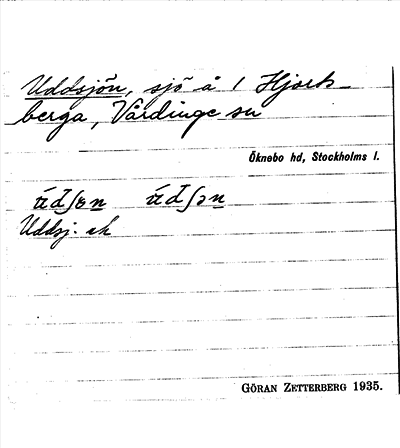 Uddsjön, sjö å 1 Hjorts-
berga, Vårdinge sn
Öknebo hd, Stockholms l.
Uddsj. ek
GÖRAN ZETTERBERG 1935.